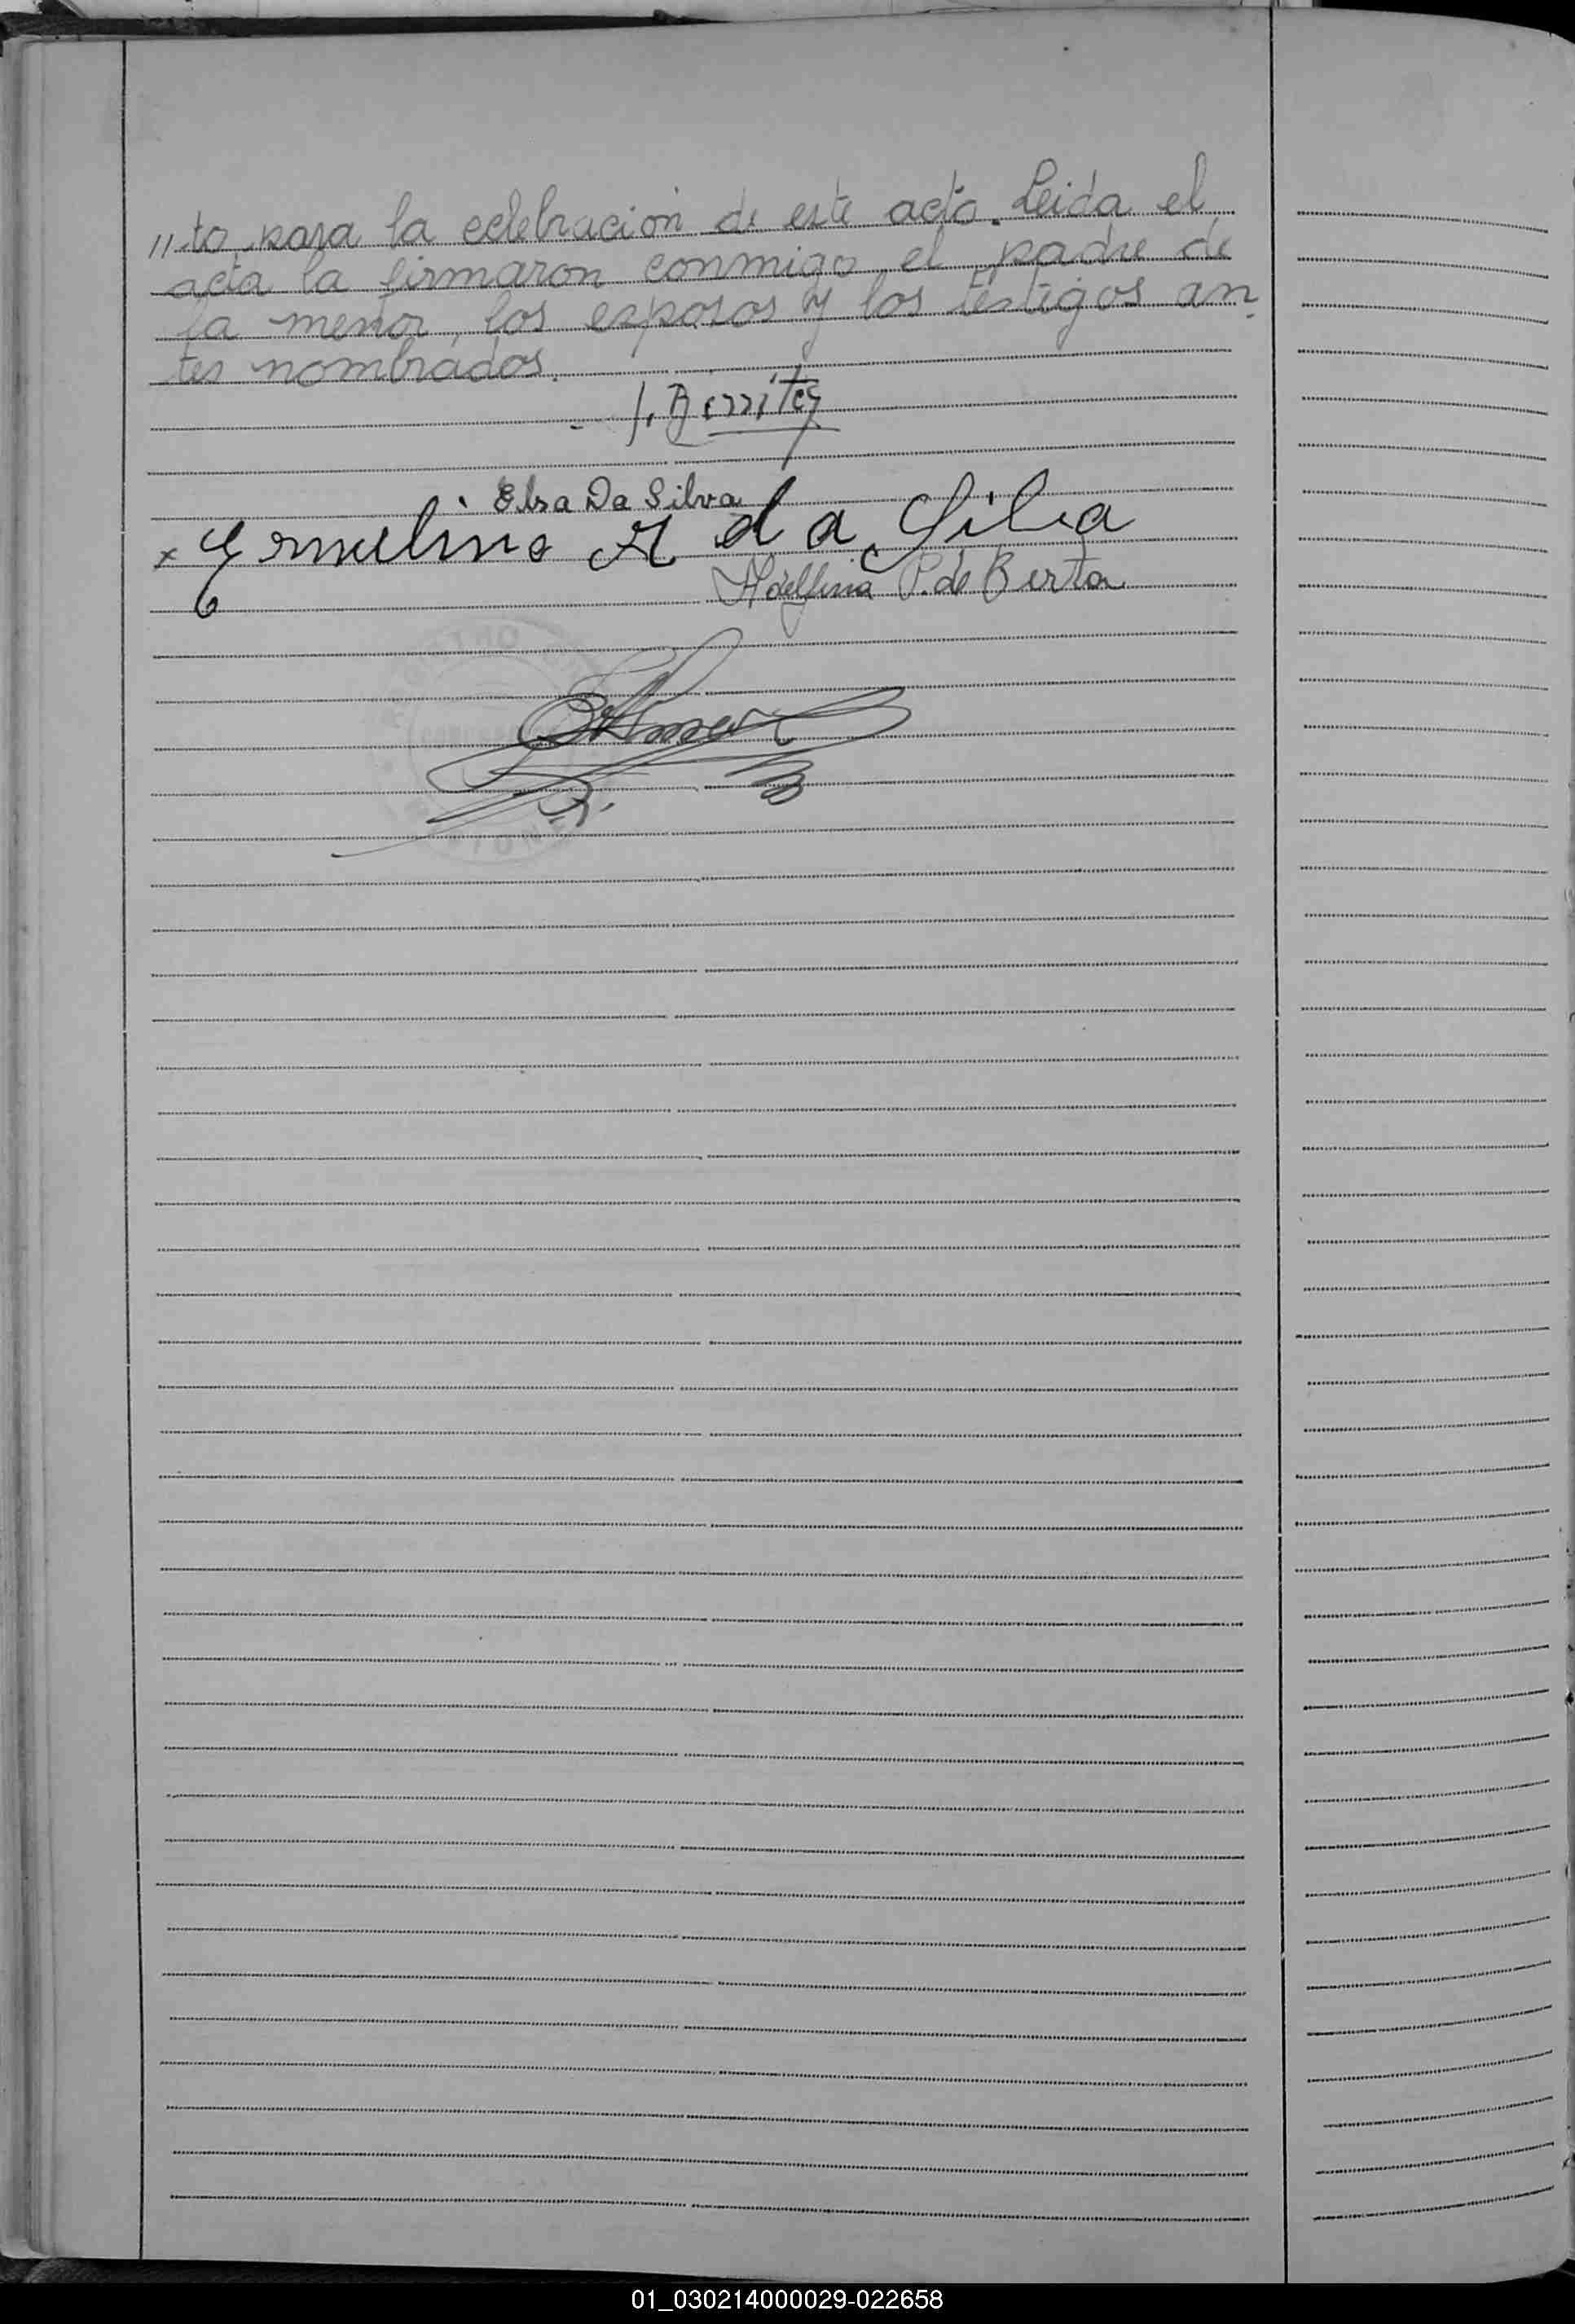 "to para la celebración de este acto. Leida el
acta la firmaron conmigo el padre de
la menor, los esposos y los testigos an-
tes nombrados.
Elsa Da Silva
x Ermelino A da Silva
Adelfina P. de Berta
01_030214000029-022658